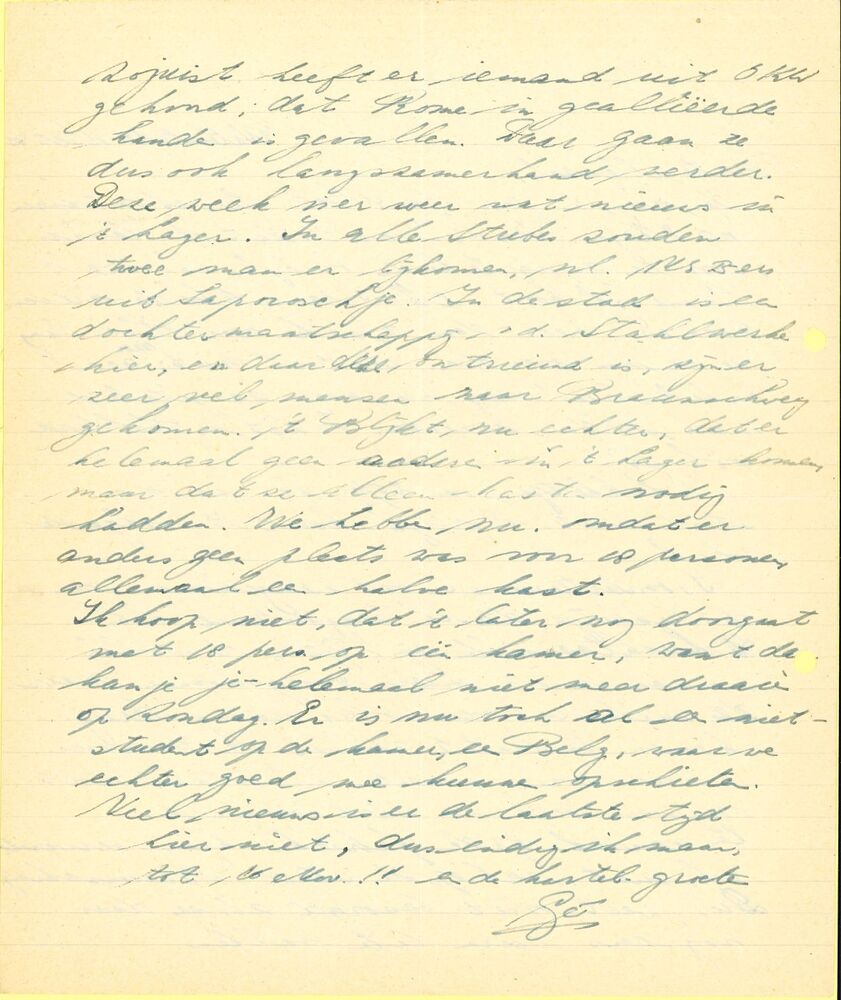 Zojuist heeft er iemand uit
gehoord, dat Rome in geallieerde
hande is gevallen. Daar gaan ze
dus ook langzamerhand verder.
Deze week is er weer wat nieuws in
't Lager. In alle Stubes zouden
twee man er bijkomen, nl.
uit Saporoschje. In de stad is een
dochtermaatschappij v.d. Stahlwerke
hier, en daar deze ontruimd is, zijn er
zeer veel mensen naar Braunschweig
gekomen. 't Blijkt nu echter, dat er
helemaal geen andere in 't Lager komen,
maar dat ze alleen kasten nodig
hadden. We hebbe nu, omdat er
anders geen plaats was voor 18 personen,
allemaal een halve kast.
Ik hoop niet, dat 't later nog doorgaat
met 18 pers. op één kamer, want da
kan je je helemaal niet meer draaie
op Zondag. Er is nu toch al een niet-
student op de kamer, een Belg, waar we
echter goed mee kunne opschieten.
Veel nieuws is er de laatste tijd
hier niet, dus eindig ik maar,
tot Nov.!! en de hartel. groete